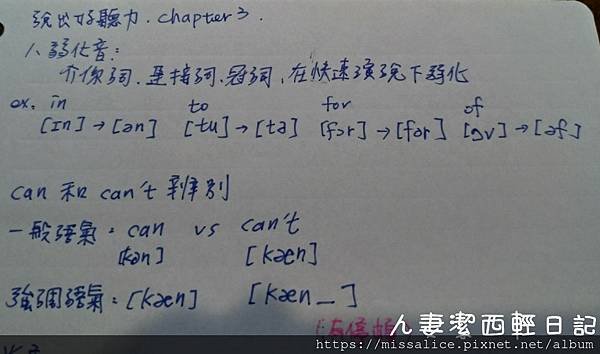 說出好聽力. chapter 3.
1. 弱化音:
介係詞. 連接詞. 冠詞, 在快速演說下弱化
ex. in to for of
[ɪn]→[ən] [tu]→[tə] [fɔr]→[fər] [ɑv]→[əf]
can 和 can't 辨別
一般語氣: can vs can't
[kən] [kæn]
強調語氣: [kæn] [kæn _ ]
有停頓
人妻潔西輕日記
https://missalice.pixnet.net/album